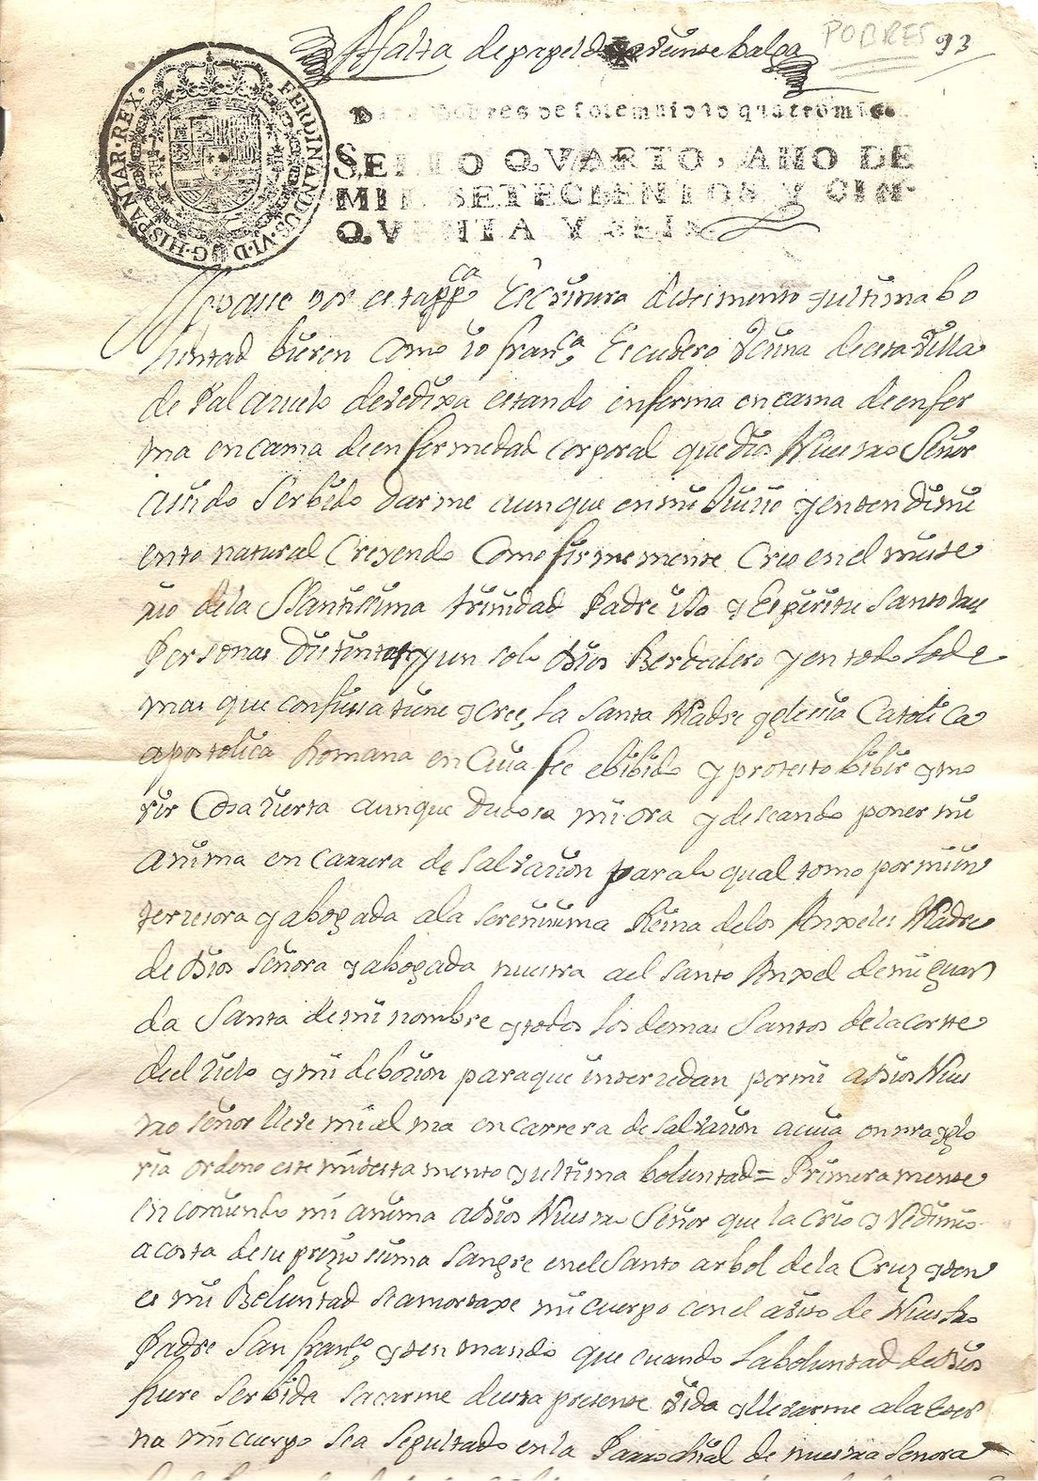 POBRES 93
A falta de papel de veinte balga
Para pobres de solemnidad quatro mrs.
SELLO QVARTO, AÑO DE
MIL SETECIENTOS Y CIN-
QVENTA Y SEIS
FERDINANDUS·VI·D·G·HISPANIAR·REX·
Sepase por esta ppca Escritura detestimento y ultima bo
luntad bieren como io Franca Escudero Vecina de esta Villa
de Palazuelo de Vedixa estando enferma en cama de enfer
ma en cama de enfermedad corporal que Dios Nuestro Señor
a sido serbido darme aunque en mi Juicio y entendimi
ento natural Creyendo Como firmemente Creo en el miste
rio de la SSantisima trinidad Padre iJo y Espiritu Santo tres
Personas Distintas y un solo Dios Berdadero y en todo lo de
mas que confiessa tiene y cree, la Santa Madre yglesia Catolica
apostolica Romana en Cuia fee e bibido y protesto bibir y mo
rir Cosa zierta aunque dudosa mi ora y deseando poner mi
anima en carrera de salvazion para lo qual tomo por mi in
terzesora y abogada a la serenisima Reina de los Anxeles Madre
de Dios señora y abogada nuestra ael Santo Anxel de mi guar
da Santa de mi nombre y todos los demas Santos de la corte
de el zielo y mi debozion para que interzedan por mi a Dios Nues
tro señor lleve mi alma en carrera de salvazion a cuia onrra y glo
ria ordeno este mi testamento y ultima boluntad = Primeramente
encomiendo mi anima a Dios Nuestro Señor que la crio y Redimio
a costa de su preziosisima sangre en el Santo arbol de la Cruz y ten
es mi Boluntad se amortaxe mi cuerpo con el avito de Nuestro
Padre San Franco, y ten mando que cuando la boluntad de Dios
fuere serbida sacarme de esta presente vida y llevarme a la eter
na mi cuerpo sea sepultado en la Parrochial de nuestra señora